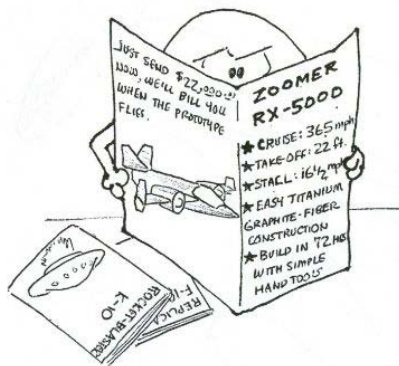 JUST SEND $22,000.00
NOW, WE'LL BILL YOU
WHEN THE PROTOTYPE
FLIES.
ZOOMER
RX-5000
★ CRUISE: 365 mph
★ TAKE-OFF: 22 ft.
★ STALL: 16½ mph
★ EASY TITANIUM
GRAPHITE-FIBER
CONSTRUCTION
★ BUILD IN 72 HRS
WITH SIMPLE
HAND TOOLS
ROCKET-BLASTER
K-10
REPLICA